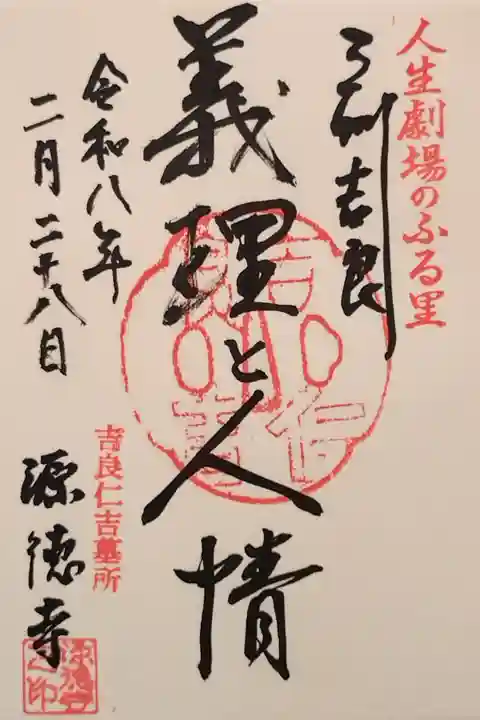 人生劇場のふる里
三州吉良
義理と人情
令和八年
二月二十八日
吉良仁吉墓所
源徳寺